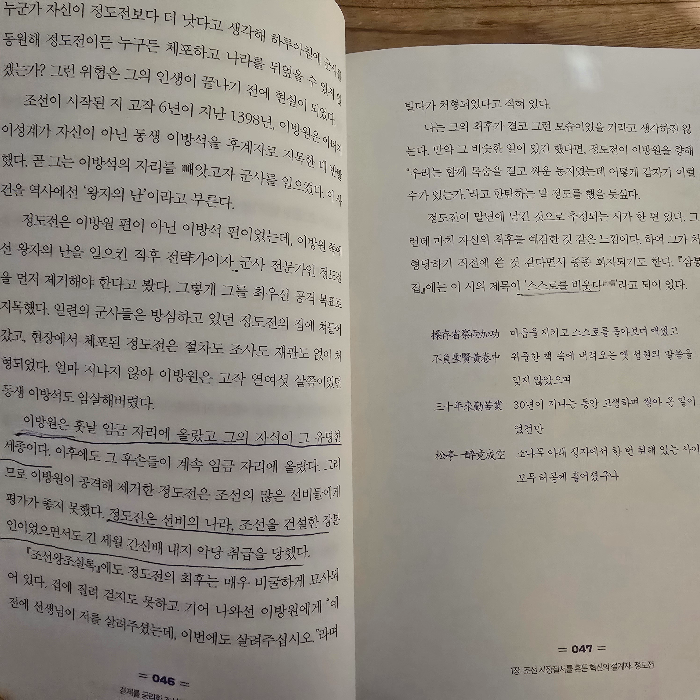 누군가 자신이 정도전보다 더 낫다고 생각해 하루아침에 군사를
동원해 정도전이든 누구든 체포하고 나라를 뒤엎을 수 있지 않
겠는가? 그런 위험은 그의 인생이 끝나기 전에 현실이 되었다.
조선이 시작된 지 고작 6년이 지난 1398년, 이방원은 아버지
이성계가 자신이 아닌 동생 이방석을 후계자로 지목한 데 반발
했다. 곧 그는 이방석의 자리를 빼앗고자 군사를 일으켰다. 이 사
건을 역사에선 '왕자의 난'이라고 부른다.
정도전은 이방원 편이 아닌 이방석 편이었는데, 이방원
선 왕자의 난을 일으킨 직후 전략가이자 군사 전문가인 정도전
을 먼저 제거해야 한다고 봤다. 그렇게 그를 최우선 공격 목표로
지목했다. 일련의 군사들은 방심하고 있던 정도전의 집에 쳐들어
갔고, 현장에서 체포된 정도전은 절차도 조사도 재판도 없이 처
형되었다. 얼마 지나지 않아 이방원은 고작 열여섯 살쯤이었던
동생 이방석도 암살해버렸다.
이방원은 훗날 임금 자리에 올랐고 그의 자식이 그 유명한
세종이다. 이후에도 그 후손들이 계속 임금 자리에 올랐다. 그러
므로 이방원이 공격해 제거한 정도전은 조선의 많은 선비들에게
평가가 좋지 못했다. 정도전은 선비의 나라, 조선을 건설한 장본
인이었으면서도 긴 세월 간신배 내지 악당 취급을 당했다.
『조선왕조실록』에도 정도전의 최후는 매우 비굴하게 묘사되
어 있다. 겁에 질려 걷지도 못하고 기어 나와선 이방원에게 "예
전에 선생님이 저를 살려주셨는데, 이번에도 살려주십시오."라며
= 046 =
빌다가 처형되었다고 적혀 있다.
나는 그의 최후가 결코 그런 모습이었을 거라고 생각하진 않
는다. 만약 그 비슷한 일이 있긴 했다면, 정도전이 이방원을 향해
"우리는 함께 목숨을 걸고 싸운 동지였는데 어떻게 갑자기 이럴
수가 있는가."라고 한탄하는 말 정도를 했을 듯싶다.
정도전이 말년에 남긴 것으로 추정되는 시가 한 편 있다. 그
런데 마치 자신의 최후를 예감한 것 같은 느낌이다. 하여 그가 처
형당하기 직전에 쓴 것 같다면서 종종 회자되기도 한다. 『삼봉
집』에는 이 시의 제목이 '스스로를 비웃다'라고 되어 있다.
操存省察兩加功 마음을 지키고 스스로를 돌아보려 애썼고
不負聖賢黃卷中 위준한 책 속에 내려오는 옛 성현의 말씀을
잊지 않았으며
三十年來勤苦業 30년이 지나는 동안 고생하며 쌓아 온 일이
었건만
松亭一醉竟成空 소나무 아래 정자에서 한 번 취해 있는 사이
모두 허공에 흩어졌구나
= 047 =
1장 조선 시장질서를 흔든 혁신의 설계자, 정도전